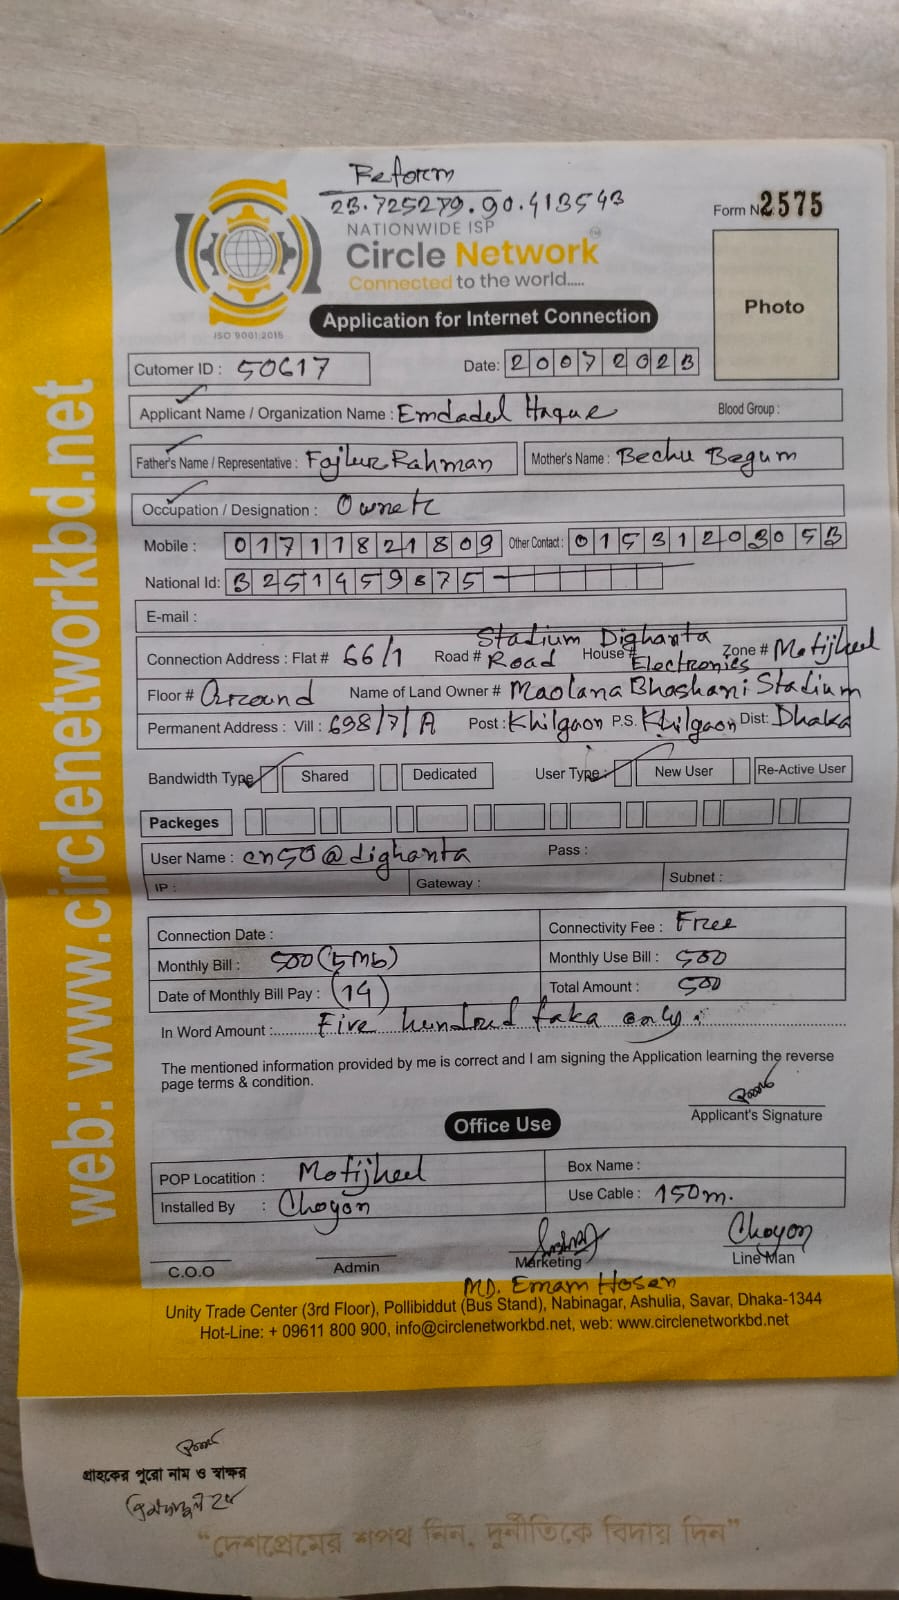 Reform
23.725279.90.413543
NATIONWIDE ISP
Form No 2575
Circle Network
Connected to the world.....
ISO 9001:2015
Application for Internet Connection
Photo
Cutomer ID : 50617 Date: 20072023
Applicant Name / Organization Name : Emdadel Haque Blood Group :
Father's Name / Representative : Fojlur Rahman Mother's Name : Bechu Begum
Occupation / Designation : Owner
Mobile : 01711821809 Other Contact : 01531203053
National Id: 3251459875
E-mail :
Connection Address : Flat # 66/1 Road # Stadium Road House # Dighanta Electronics Zone # Motijheel
Floor # Ground Name of Land Owner # Maolana Bhashani Stadium
Permanent Address : Vill : 698/7/A Post : Khilgaon P.S. Khilgaon Dist: Dhaka
Bandwidth Type: Shared Dedicated User Type: New User Re-Active User
Packeges
User Name : cn50@dighanta Pass :
IP : Gateway : Subnet :
Connection Date : Connectivity Fee : Free
Monthly Bill : 500 (5 Mb) Monthly Use Bill : 500
Date of Monthly Bill Pay : (14) Total Amount : 500
In Word Amount : Five hundred taka only.
The mentioned information provided by me is correct and I am signing the Application learning the reverse
page terms & condition.
Applicant's Signature
Office Use
POP Locatition : Motijheel Box Name :
Installed By : Choyon Use Cable : 150m.
Choyon
C.O.O Admin Marketing Line Man
MD. Emam Hosen
Unity Trade Center (3rd Floor), Pollibiddut (Bus Stand), Nabinagar, Ashulia, Savar, Dhaka-1344
Hot-Line: + 09611 800 900, info@circlenetworkbd.net, web: www.circlenetworkbd.net
web: www.circlenetworkbd.net
গ্রাহকের পুরো নাম ও স্বাক্ষর
"দেশপ্রেমের শপথ নিন, দুর্নীতিকে বিদায় দিন"